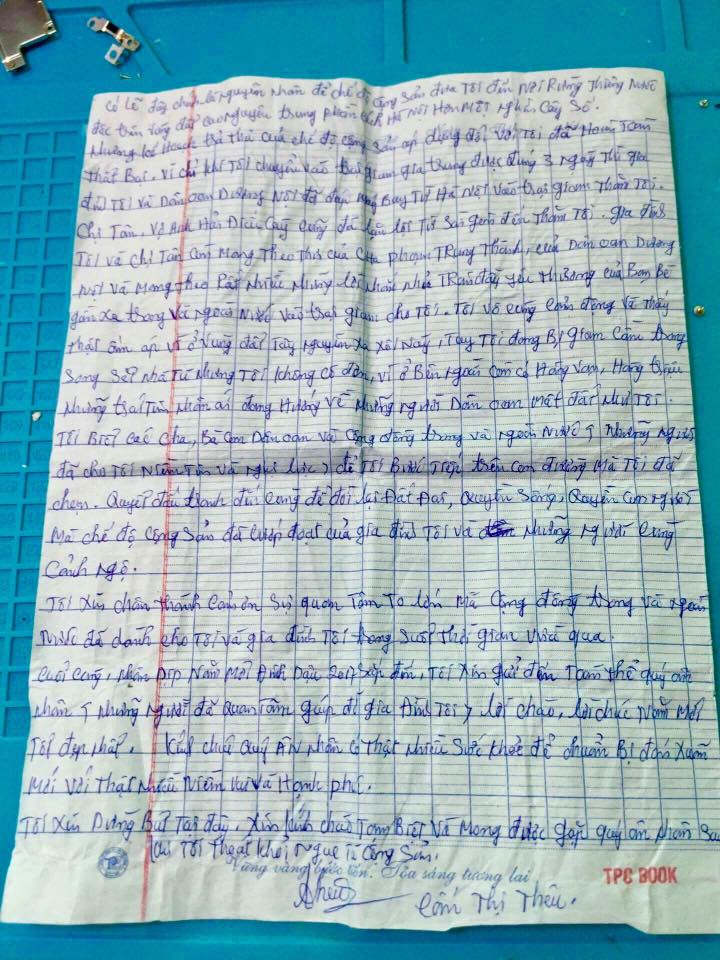 Có lẽ đây chính là nguyên nhân để chế độ Cộng Sản đưa Tôi đến Nơi Rừng Thiêng Nước
độc trên vùng đất cao nguyên trung phần cách Hà Nội Hơn Một Nghìn Cây Số.
Nhưng kế Hoạch trả thù của chế độ cộng sản áp dụng đối với Tôi đã Hoàn Toàn
thất Bại. Vì chỉ khi Tôi chuyển vào trại giam gia trung được đúng 3 ngày Thì gia
đình Tôi và Dân oan Dương Nội đã đáp Máy Bay Từ Hà Nội vào trại giam Thăm Tôi.
Chị Tân. Vợ Anh Hải Điếu Cày cũng đã lặn lội Từ Sài gòn đến Thăm Tôi. gia đình
Tôi và chị Tân Còn Mang Theo Thư của Cha phạm Trung Thành, của Dân oan Dương
Nội Và Mang Theo Rất Nhiều Những lời Nhắn Nhủ Tràn đầy yêu Thương của Bạn Bè
gần xa trong và ngoài Nước vào trại giam cho Tôi. Tôi vô cùng cảm động và thấy
thật ấm áp vì ở Vùng đất Tây Nguyên xa xôi Này, Tuy Tôi đang Bị giam Cầm trong
Song Sắt Nhà Tù Nhưng Tôi không cô đơn, vì ở Bên Ngoài Còn có Hàng Vạn, Hàng triệu
Những trái Tim Nhân ái đang Hướng Về Những người Dân oan Mất đất Như Tôi.
Tôi Biết các cha, Bà Con Dân oan và Cộng đồng trong và ngoài Nước, Những Người
đã cho Tôi Niềm Tin và Nghị lực, để Tôi Bước Tiếp trên con đường Mà Tôi đã
chọn. Quyết đấu tranh đến cùng để đòi lại Đất Đai, Quyền Sống, Quyền Con Người
Mà chế độ Cộng Sản đã cướp đoạt của gia đình Tôi và Những Người Cùng
Cảnh Ngộ.
Tôi Xin chân thành Cảm ơn Sự quan Tâm To lớn Mà Cộng đồng trong và ngoài
Nước đã dành cho Tôi và gia đình Tôi trong Suốt thời gian vừa qua.
Cuối Cùng, Nhân Dịp Năm Mới Đinh Dậu 2017 Sắp đến, Tôi Xin gửi đến Toàn thể quý ân
Nhân, Những Người đã Quan Tâm giúp đỡ gia đình Tôi, lời chào, lời chúc Năm Mới
Tốt đẹp Nhất. Kính chúc Quý ÂN Nhân có Thật Nhiều Sức khỏe để chuẩn Bị đón Xuân
Mới Với Thật Nhiều Niềm Vui Và Hạnh phúc.
Tôi Xin Dừng Bút Tại đây. Xin kính chào Tạm Biệt Và Mong được gặp quý ân Nhân Sau
khi Tôi Thoát khỏi Ngục Tù Cộng Sản.
Vững vàng bước tiến. Tỏa sáng tương lai
TPC BOOK
Thêu
Cấn Thị Thêu.